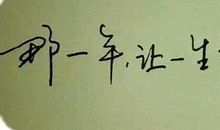 那一年,让一生